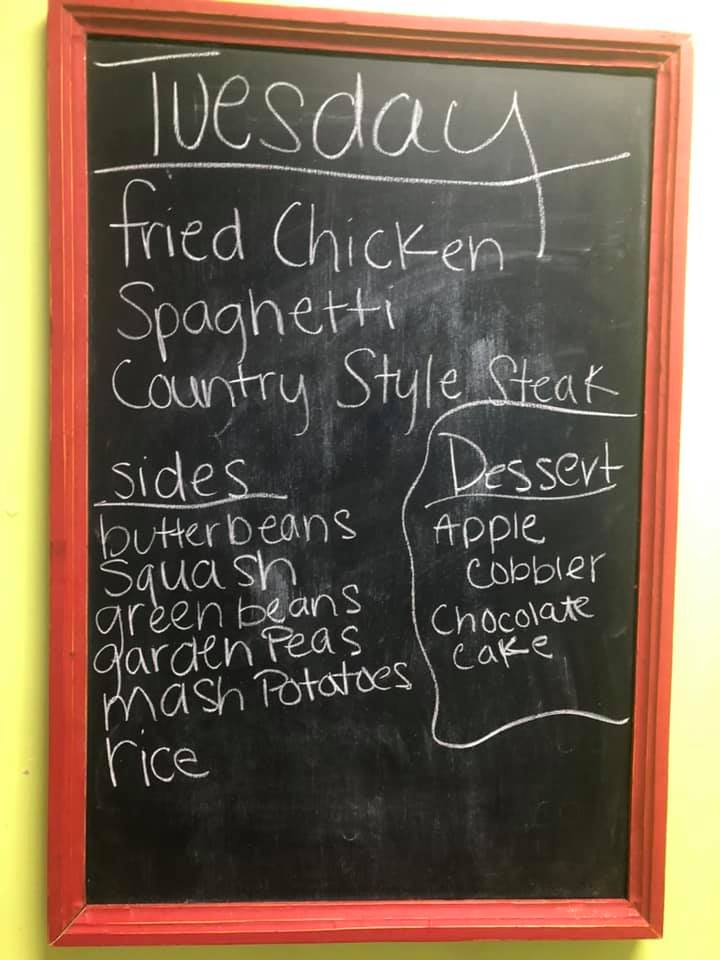 Tuesday
fried Chicken
Spaghetti
Country Style Steak
sides
butterbeans
Squash
green beans
garden Peas
mash Potatoes
rice
Dessert
Apple
cobbler
Chocolate
cake